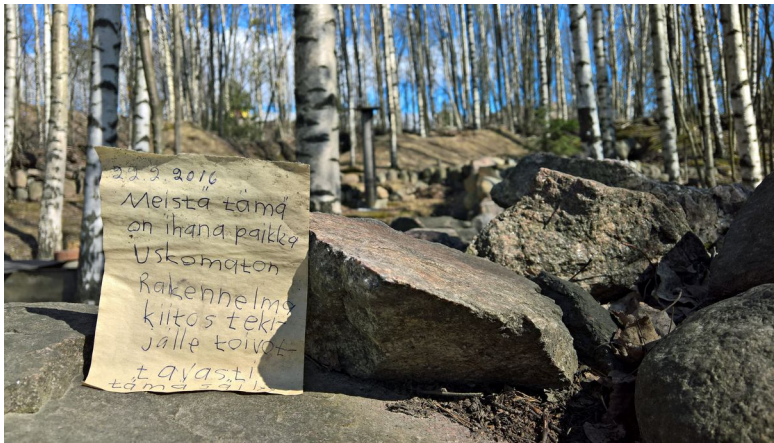 22.2.2016
Meistä tämä
on ihana paikka
Uskomaton
Rakennelma
kiitos teki-
jälle toivot-
tavasti
tämä säil